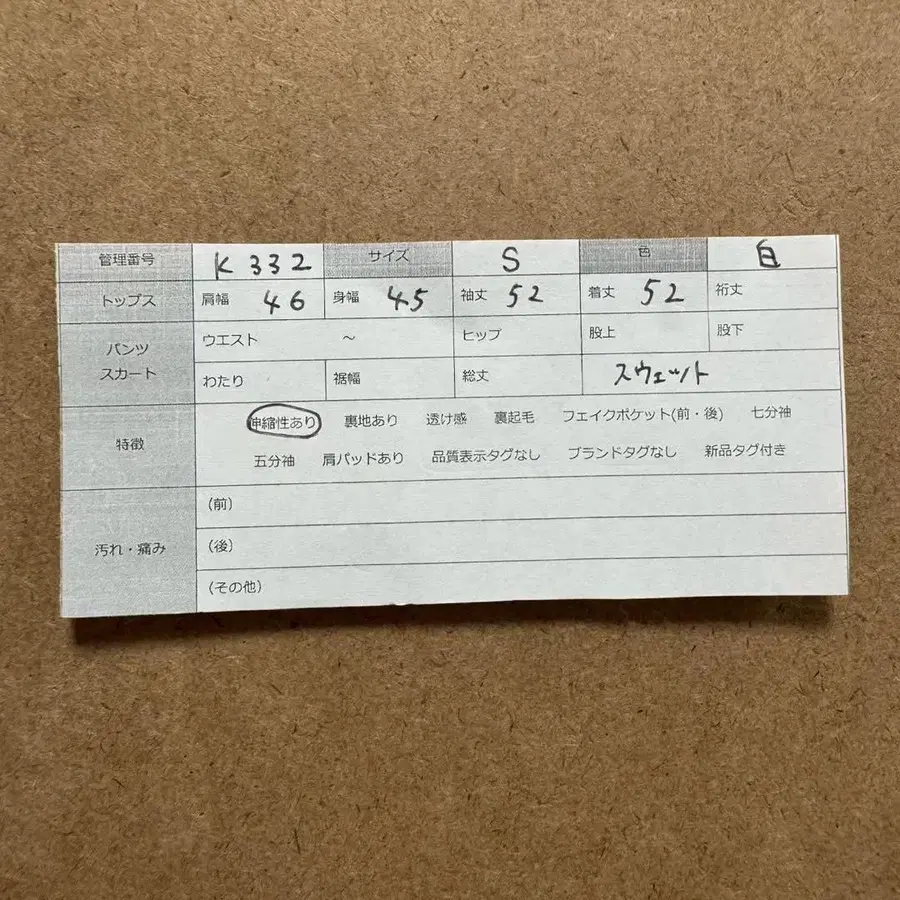 管理番号 K332 サイズ S 色 白
トップス 肩幅 46 身幅 45 袖丈 52 着丈 52 裄丈
パンツ スカート
ウエスト ～ ヒップ 股上 股下
わたり 裾幅 総丈 スウェット
特徴
伸縮性あり 裏地あり 透け感 裏起毛 フェイクポケット(前・後) 七分袖
五分袖 肩パッドあり 品質表示タグなし ブランドタグなし 新品タグ付き
汚れ・痛み
（前）
（後）
（その他）